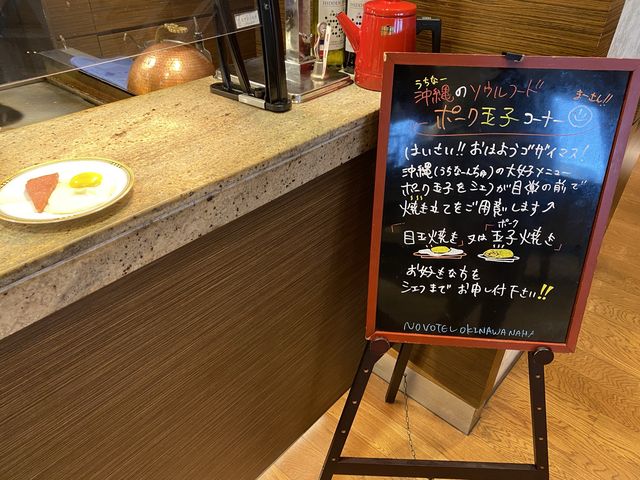 うちなー
沖縄のソウルフード
まーさん!!
ポーク玉子コーナー
はいさい!! おはようございマス!
沖縄(うちなーんちゅ)の大好きメニュー
ポーク玉子をシェフが目の前で
焼き立てをご用意します♪
ポーク
「目玉焼き」又は「玉子焼き」
お好きな方を
シェフまでお申し付下さい!!
NOVOTEL OKINAWA NAHA